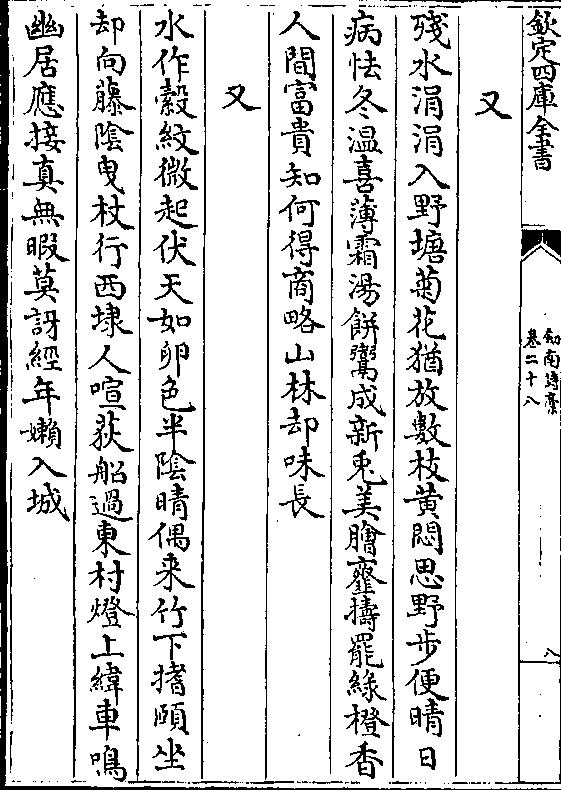 欽定四庫全書
劍南詩藁
卷二十八
八
又
殘水涓涓入野塘菊花猶放數枝黄悶思野步便晴日
病怯冬温喜薄霜湯餅鬻成新兎美膾虀擣罷綠橙香
人間富貴知何得商略山林却味長
又
水作縠紋微起伏天如卵色半陰晴偶来竹下搘頤坐
却向藤陰曳杖行西埭人喧荻船過東村燈上緯車鳴
幽居應接真無暇莫訝經年嬾入城